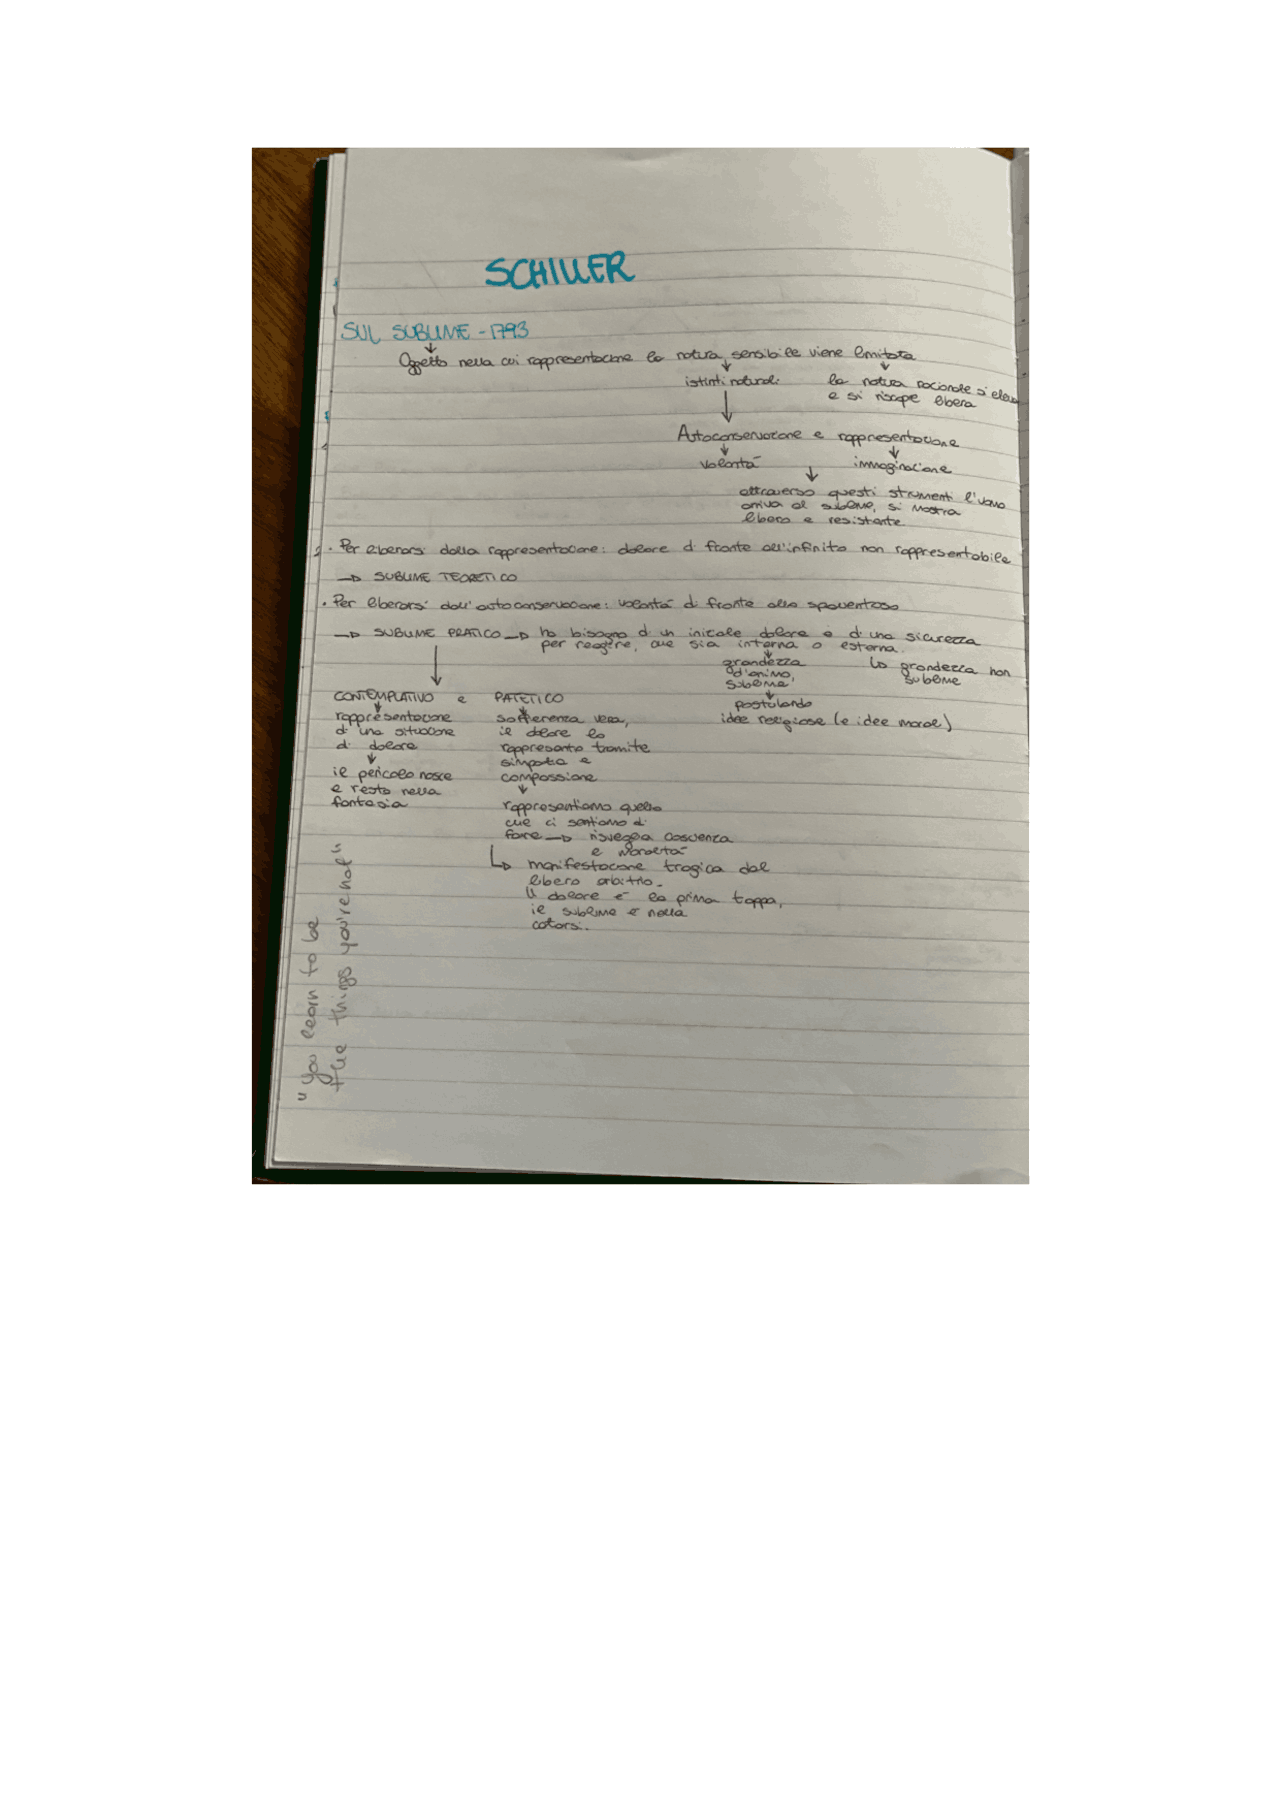 SCHILLER
SUL SUBLIME - 1793
Oggetto nella cui rappresentazione la natura sensibile viene limitata
istinti naturali
la natura razionale si eleva
e si riscopre libera
Autoconservazione e rappresentazione
volontà
immaginazione
attraverso questi strumenti l'uomo
arriva al sublime, si mostra
libero e resistente
· Per liberarsi dalla rappresentazione: dolore di fronte all'infinito non rappresentabile
→ SUBLIME TEORETICO
· Per liberarsi dall'autoconservazione: volontà di fronte allo spaventoso
→ SUBLIME PRATICO → ha bisogno di un iniziale dolore e di una sicurezza
per reagire, che sia interna o esterna.
grandezza
d'animo,
sublime
↳ grandezza non
sublime
postulando
idee religiose (e idee morali)
CONTEMPLATIVO e PATETICO
rappresentazione
di una situazione
di dolore
il pericolo nasce
e resta nella
fantasia
sofferenza vera,
il dolore lo
rappresento tramite
simpatia e
compassione
rappresentiamo quello
che ci sentiamo di
fare → risveglia coscienza
e moralità
↳ manifestazione tragica del
libero arbitrio.
Il dolore è la prima tappa,
il sublime è nella
catarsi.
"you learn to be
the things you're not"